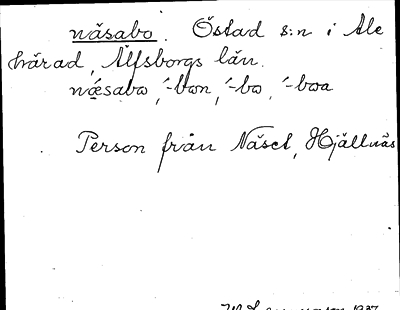 näsabo. Östad s:n i Ale
härad, Älfsborgs län.
næsabo, ´-bon, ´-bo, ´-boa
Person från Näset, Hjällnäs
1937